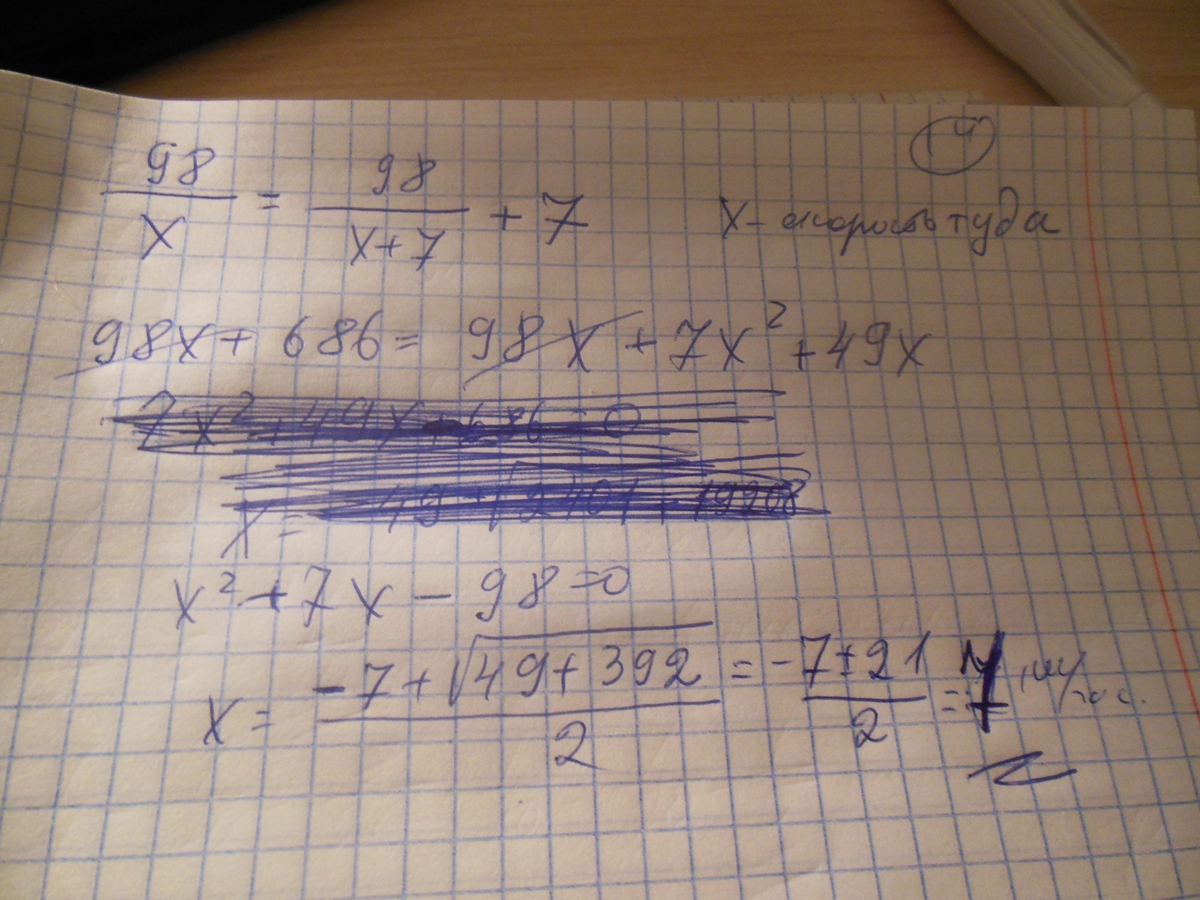 14
98/x = 98/(x+7) + 7 x - скорость туда
98x + 686 = 98x + 7x² + 49x
7x² + 49x + 686 = 0
x² + 7x - 98 = 0
x = (-7 + √(49 + 392))/2 = (-7 ± 21)/2 = 7 км/час.